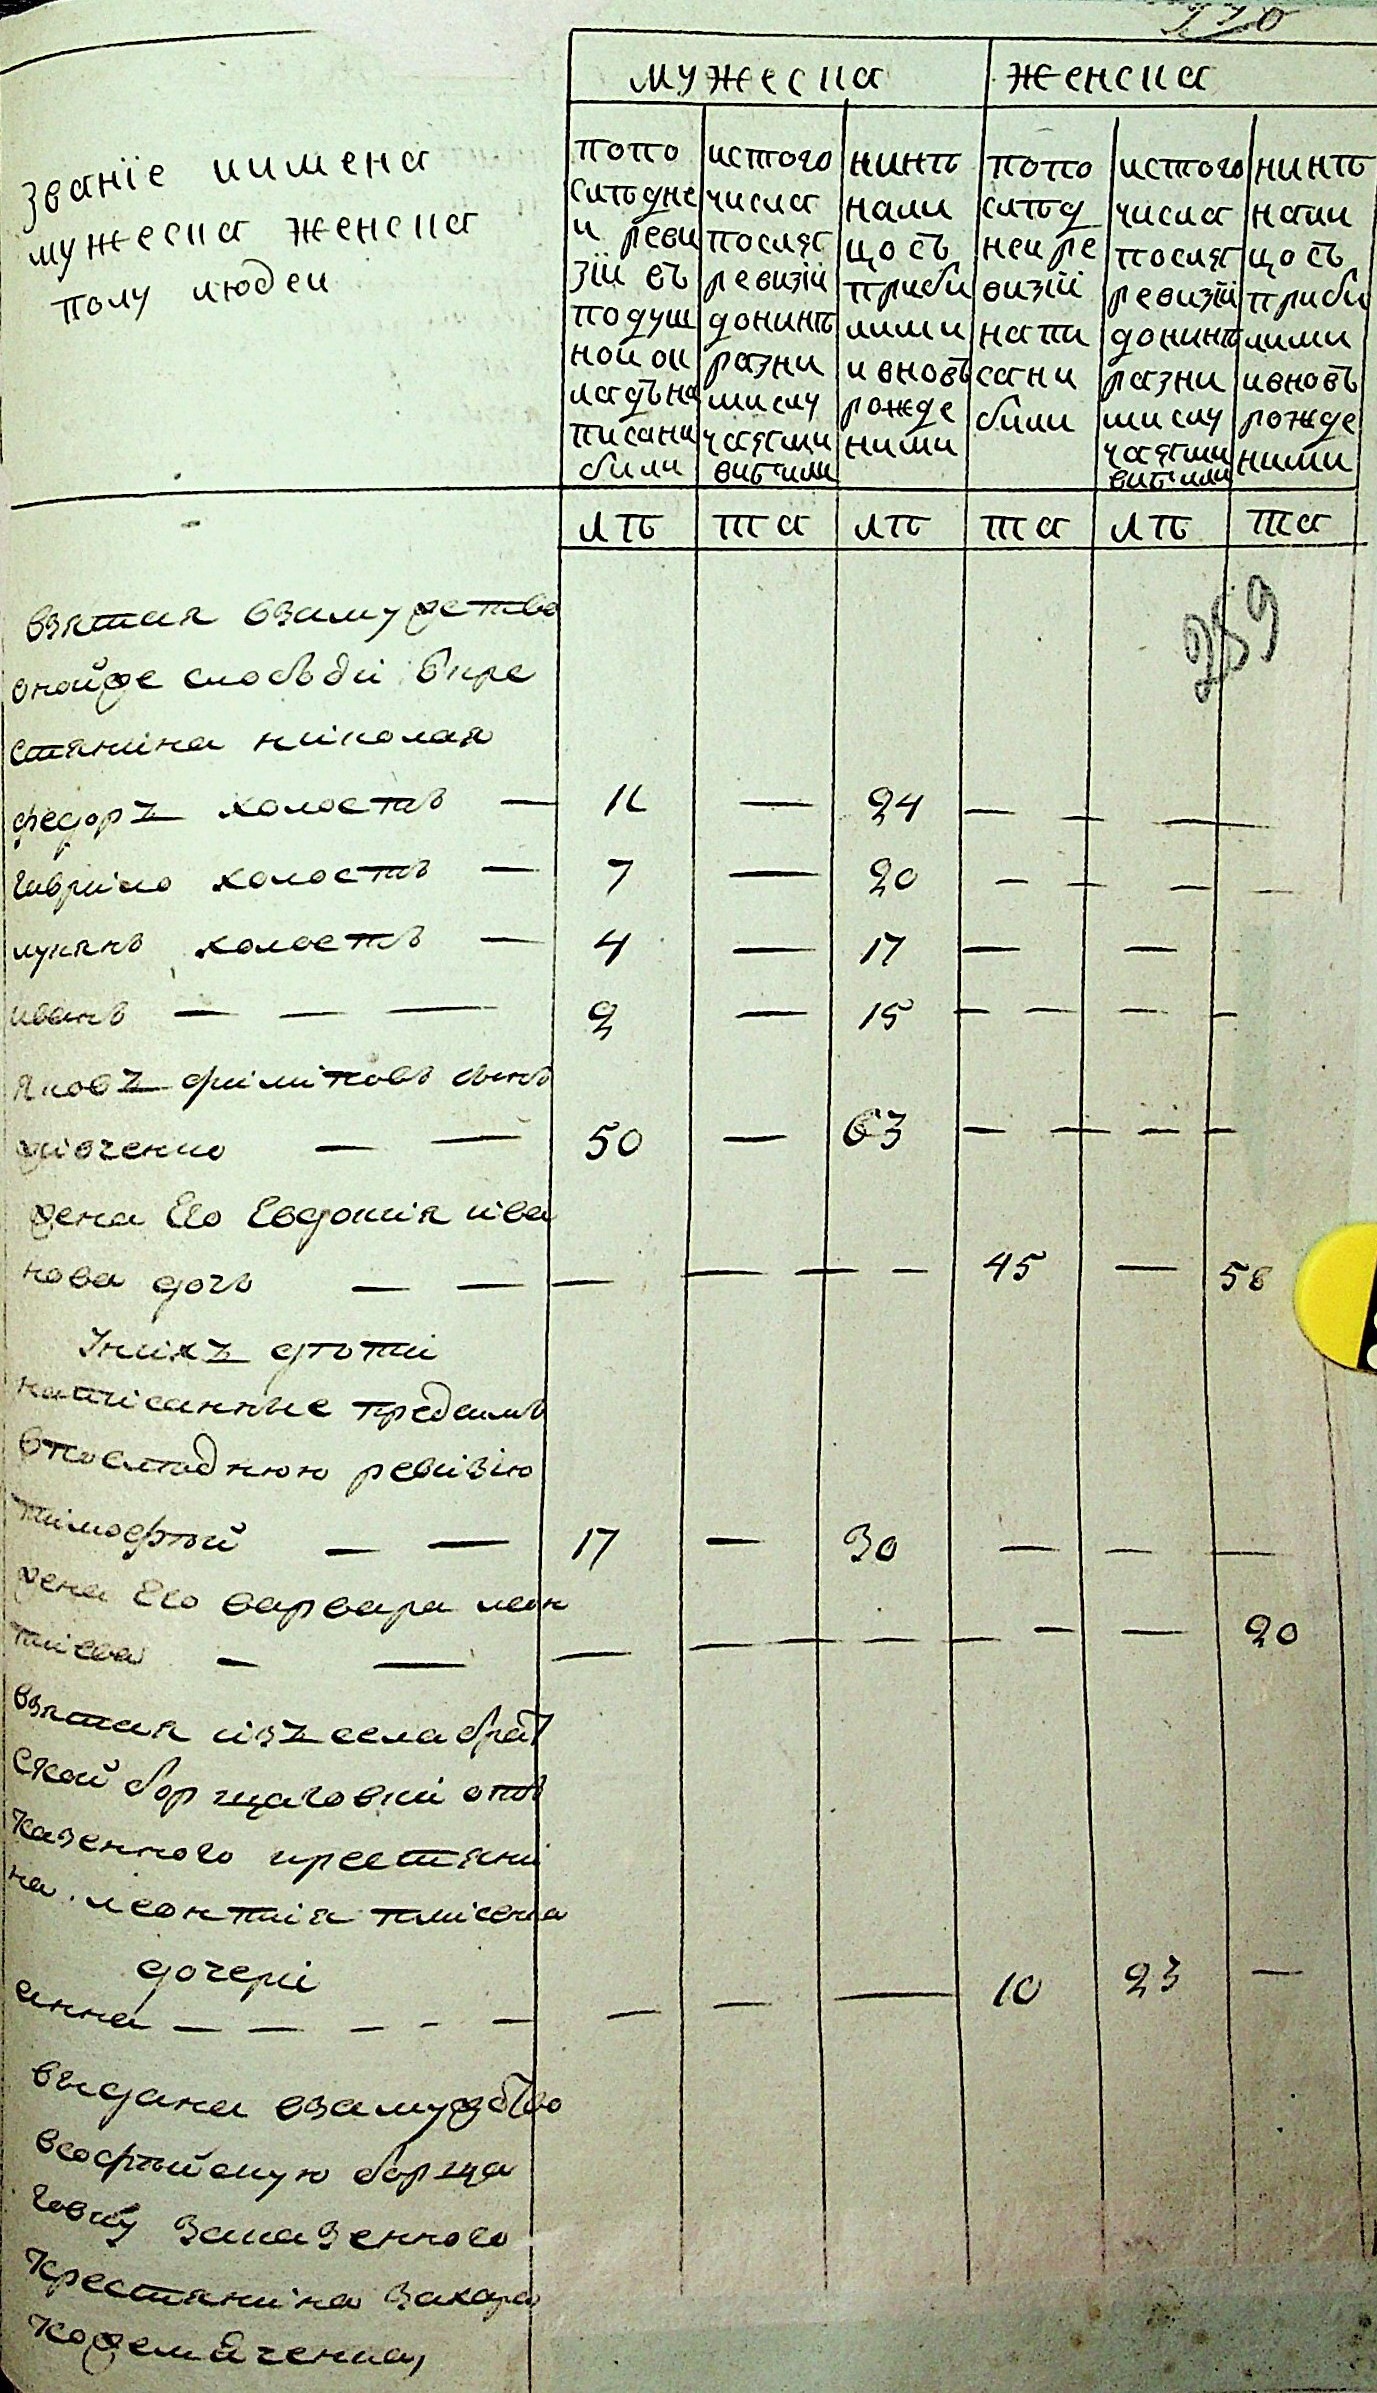 мужеска женска
званіе иимена
мужеска женска
полу людеи
попо
слѣдне
и реви
зіи въ
подуш
нои ок
ладъна
писани
били
истого
числа
послѣ
ревизіи
донинѣ
разни
ми слу
чаями
вибили
нинѣ
нали
цо съ
приби
лими
и вновъ
рожде
ними
попо
слѣд
неи ре
визіи
напи
сани
били
истого
числа
послѣ
ревизіи
донинѣ
разни
ми слу
чаями
вибили
нинѣ
нали
цо съ
приби
лими
ивновъ
рожде
ними
лѣ та лѣ та лѣ та
259
взятая взамужетво
онойже слободи укре
стянина николая
федоръ холостъ — 11 — 24 — — —
гаврило холостъ — 7 — 20 — — — —
лукянъ холостъ — 4 — 17 — —
иванъ — — — 2 — 15 — — — —
яковъ филиповъ сынъ
дивченко — — 50 — 63 — — — —
жена Его Евдокия ива
нова дочъ — — — — — — 45 — 58
Унихъ дѣти
написанные предсимъ
впослѣднюю ревизію
тимофѣй — — 17 — 30 — — —
жена Его варвара леон
тиева — — — — — — — — — 20
взятая изъ села брат
ской борщаговки отъ
казенного крестяни
на леонтия
дочери
анна — — — — — — — — 10 23 —
выдана взамужство
всофѣйскую борща
говку заказенного
крестянина захара
кожемяченка,